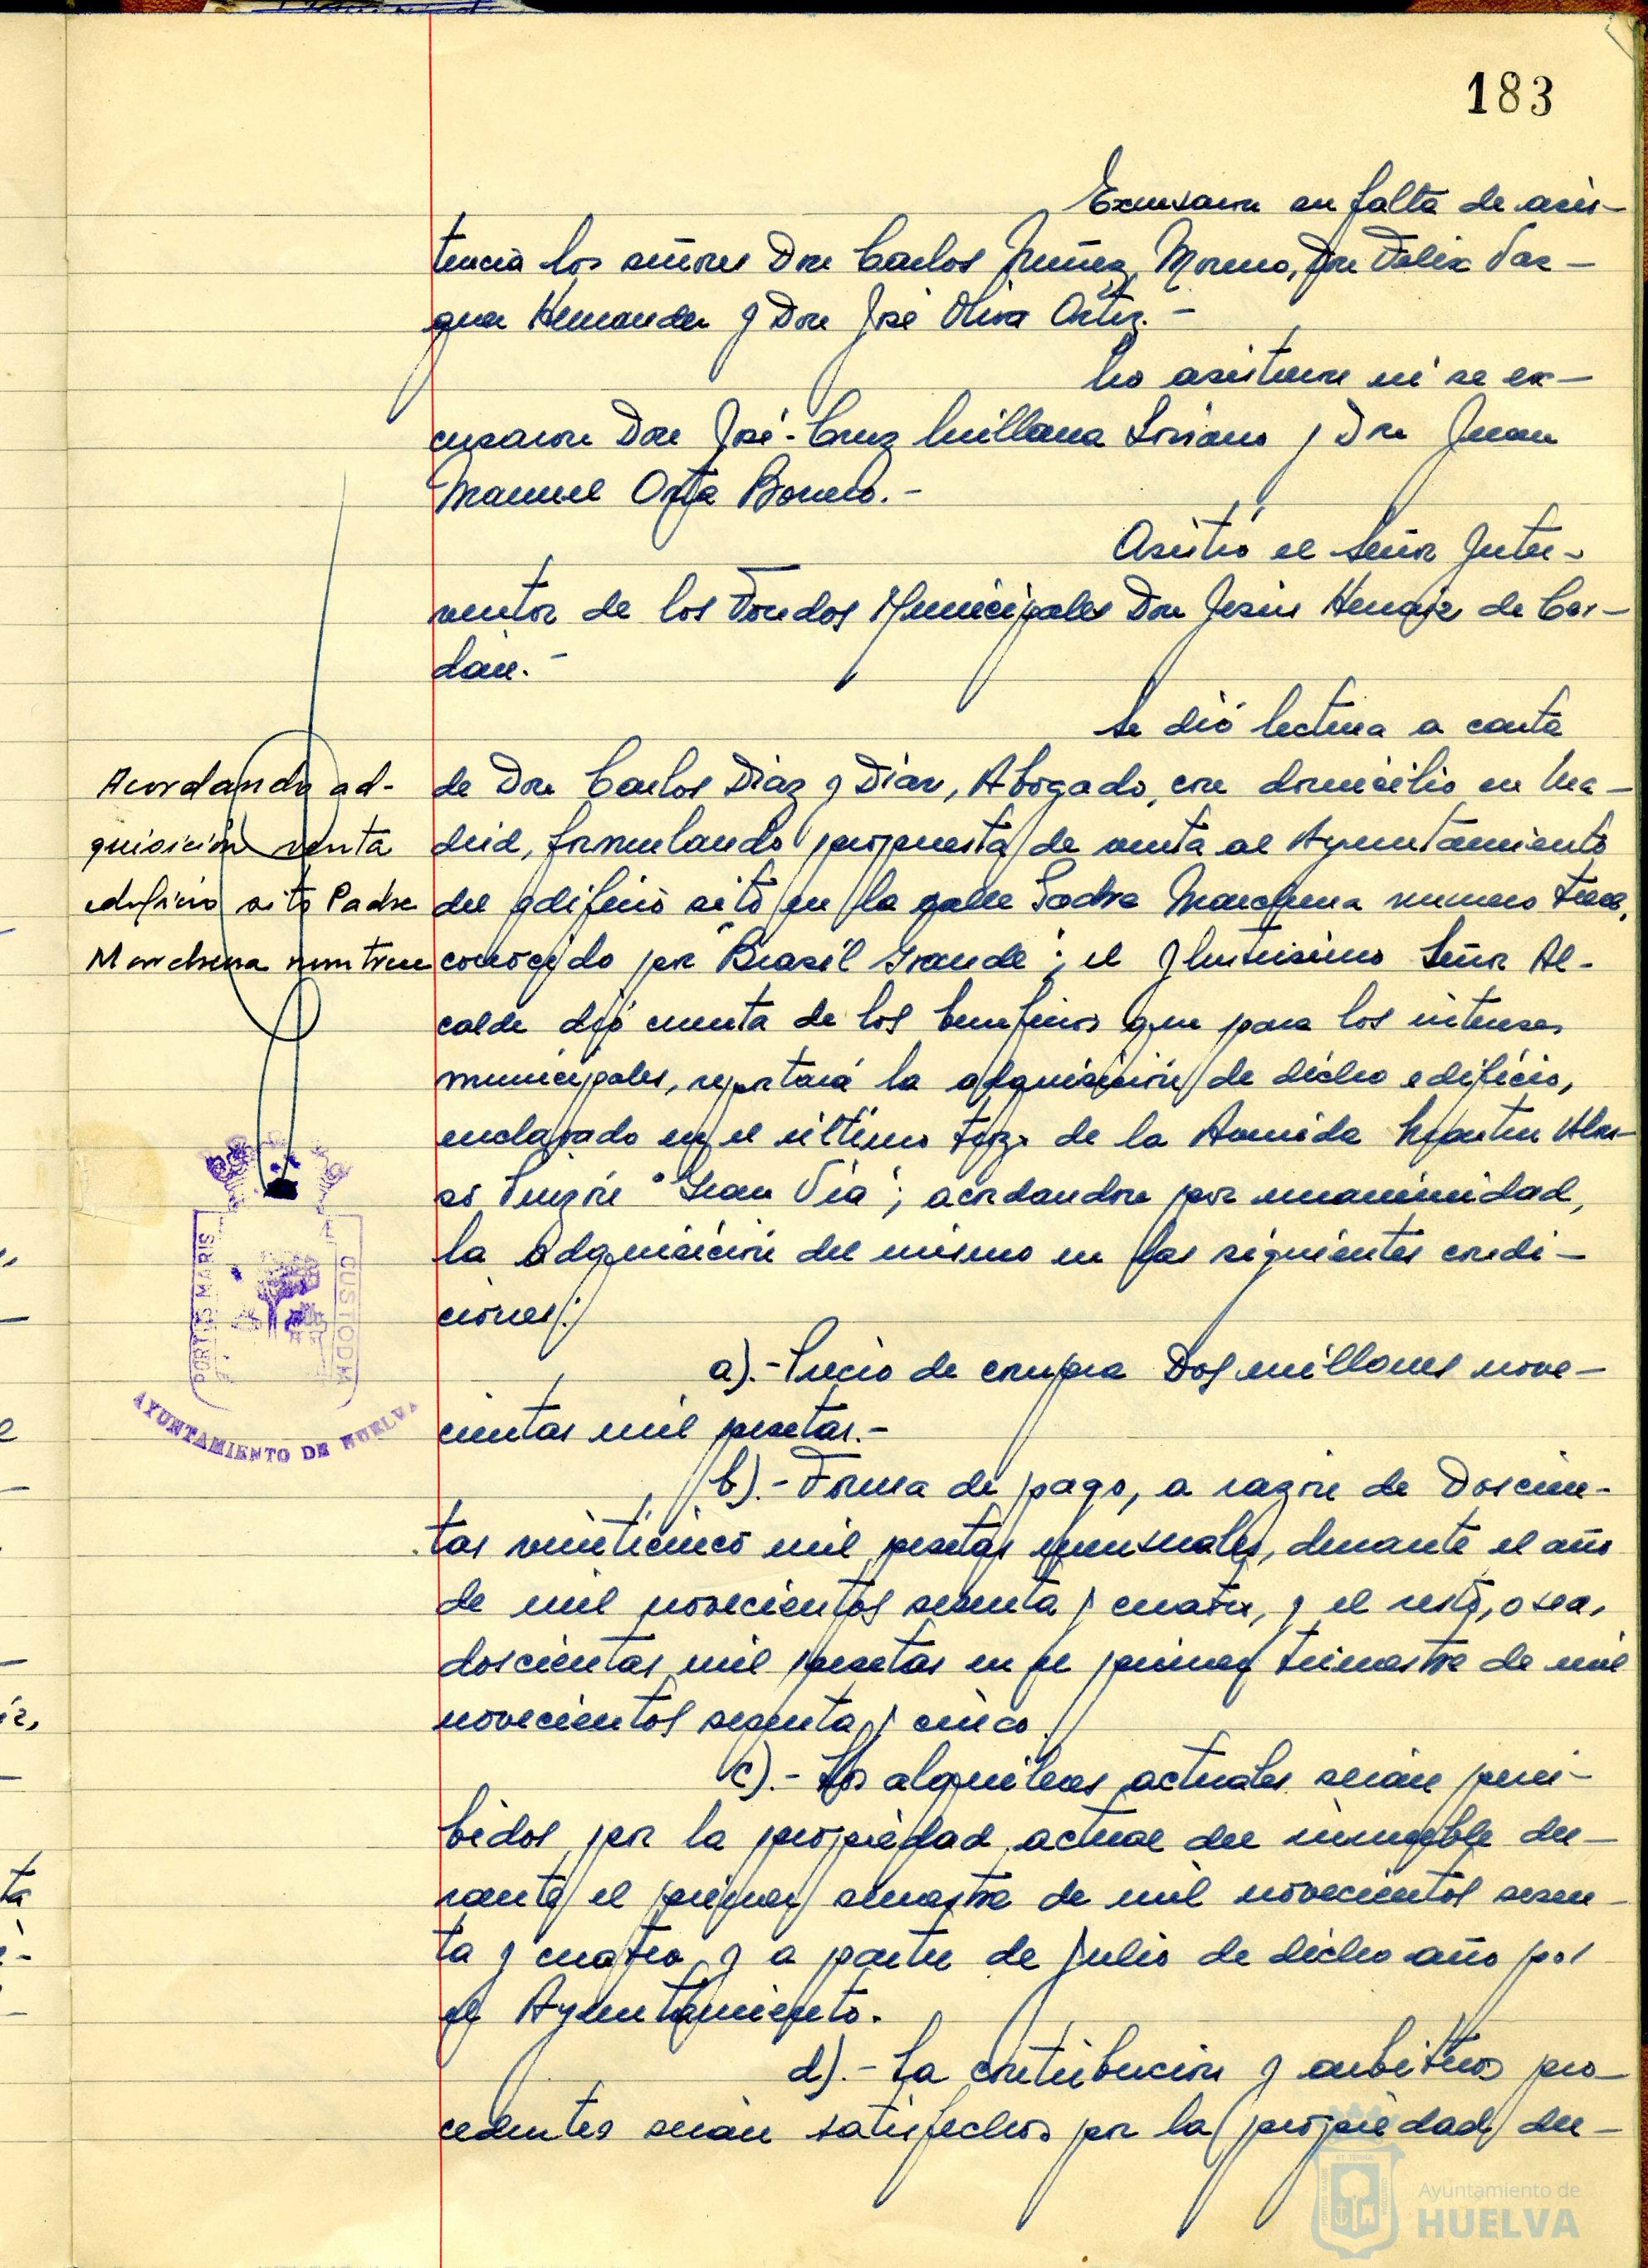 183
Excusaron su falta de asis-
tencia los señores Don Carlos Nuñez Moreno, Don Felix Vaz-
quez Hernandez y Don José Oliva Ortiz.-
No asistieron ni se ex-
cusaron Don José-Cruz Millana Soriano y Don Juan
Manuel Orta Borrero.-
Asistió el Señor Inter-
ventor de los Fondos Municipales Don Jesús Hernaiz de Cer-
dan.-
Se dió lectura a carta
Acordando ad-
quisición venta
edificio sito Padre
Marchena num trece
de Don Carlos Diaz y Diaz, Abogado, con domicilio en Ma-
drid, formulando propuesta de venta al Ayuntamiento
del edificio sito en la calle Padre Marchena numero trece,
conocido por "Brasil Grande"; el Ilustrisimo Señor Al-
calde dió cuenta de los beneficios que para los intereses
municipales, reportará la adquisición de dicho edificio,
enclavado en el último trozo de la Avenida Martin Alon-
so Pinzón "Gran Vía"; acordandose por unanimidad,
la adquisición del mismo en las siguientes condi-
ciones:
a).-Precio de compra Dos millones nove-
cientas mil pesetas.-
b).-Forma de pago, a razón de Doscien-
tas veinticinco mil pesetas mensuales, durante el año
de mil novecientos sesenta y cuatro, y el resto, o sea,
doscientas mil pesetas en el primer trimestre de mil
novecientos sesenta y cinco.
c).-Los alquileres actuales serán perci-
bidos por la propiedad actual del inmueble du-
rante el primer semestre de mil novecientos sesen-
ta y cuatro y a partir de julio de dicho año por
el Ayuntamiento.
d).-La contribucion y arbitrios pro-
cedentes serán satisfechos por la propiedad du-
PORTUS MARIS
CUSTODIA
AYUNTAMIENTO DE HUELVA
Ayuntamiento de
HUELVA